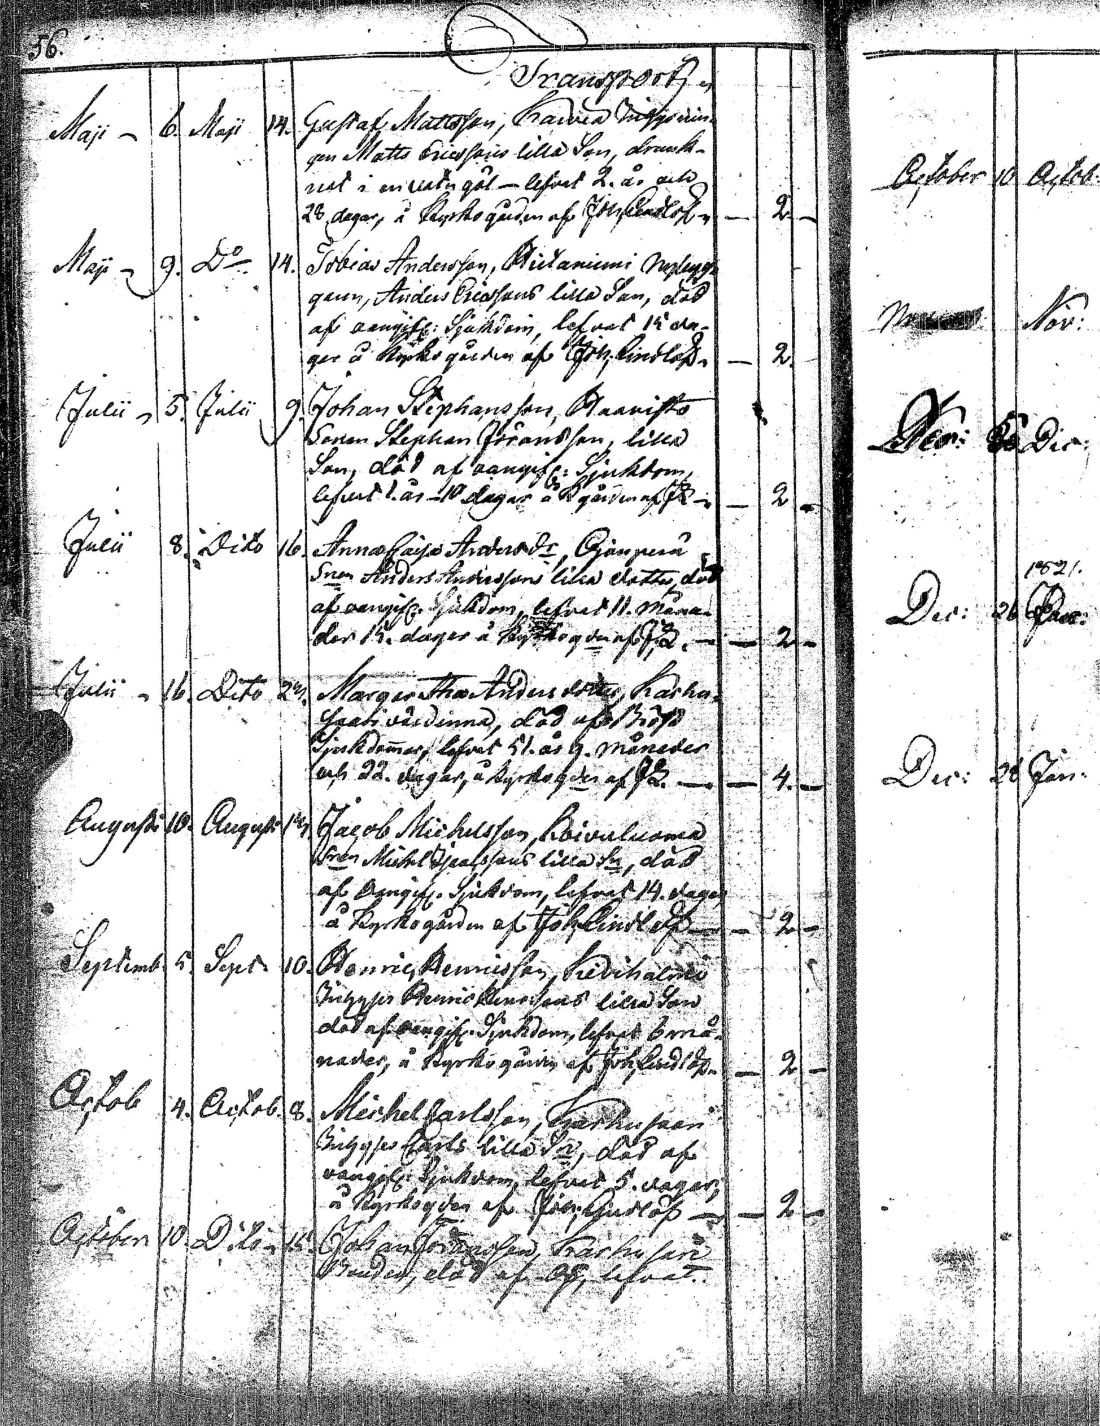 56.
Transport
Maji 6. Maji 14. Gustaf Mattsson, Inhyssin-
gen Matts Ericssons lilla Son, drunk-
nat i en göl – lefvat 2. år och
28 dagar, å Kyrkogården af Joh. Lindlöf – 2. –
Maji 9. Do 14. Tobias Andersson, Hietaniemi
Anders Ericssons lilla Son, död
af oangifv: Sjukdom, lefvat 15 da-
ger å Kyrkogården af Joh. Lindlöf – 2.
Julii 5. Julii 9. Johan Stephansson, Haavisto
Sonen Stephan Göransson, lilla
Son, död af oangifv: Sjukdom,
lefvat 1. år 10 dagar å Kgården af JL – 2 –
Julii 8. Dito 16. Anna Caisa Andersdr, 
Snen Anders Anderssons lilla dotter, död
af oangifv. Sjukdom, lefvat 11. Måna-
der 15. dagar å Kyrkogden af JL. – 2 –
Julii 16. Dito Margaretha Andersdotter, Karhu-
saari värdinna, död af Bröst
Sjukdommar, lefvat 51. år 9. Månader
och 22. dagar, å Kyrkogden af JL. – 4. –
Augusti 10. Augusti Jacob Michelsson, Koivuluoma
Snen Michel lilla Sn, död
af oangifv. Sjukdom, lefvat 14. dagar
å Kyrkogården af Joh. Lindlöf – 2 –
Septemb. 5. Sept. 10. Henric Henricsson,
Inhyses Henric Henricssons lilla Son
död af oangifv. Sjukdom, lefvat 6 må-
nader, å Kyrkogården af Joh. Lindlöf – 2 –
Octob 4. Octob. 8. Michel Carlsson, Karhusaari
Inhyses Carls lilla Sn, död af
oangifv. Sjukdom, lefvat 5. dagar,
å Kyrkogden af Joh. Lindlöf – 2 –
October 10. Dito 15. Johan Göransson, Karhusari
Bonden, död af lefvat
October 10 Octob.
Nov:
Dec: Dec:
1821.
Dec: 26
Dec: 28 Jan: